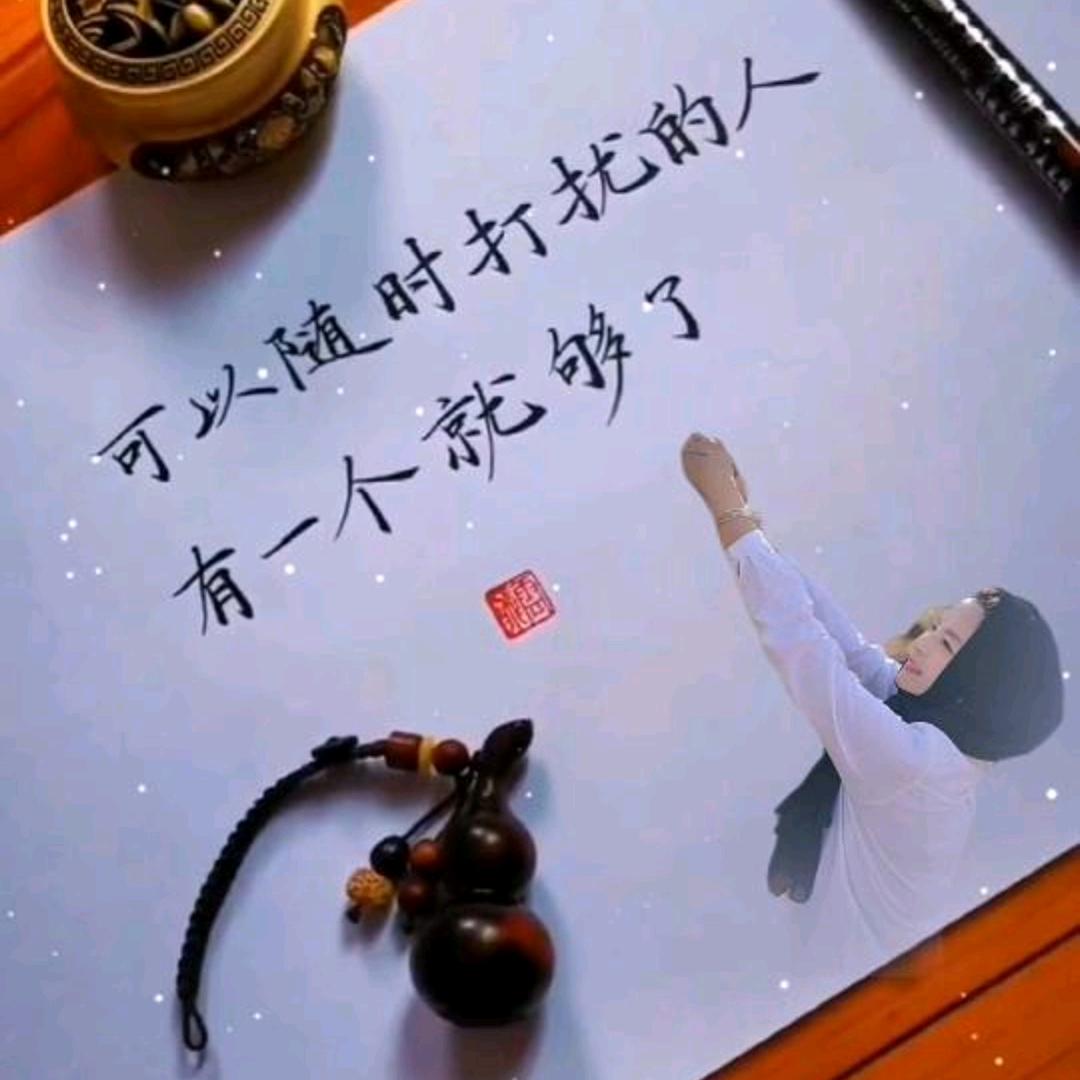 可以随时打扰的人
有一个就够了